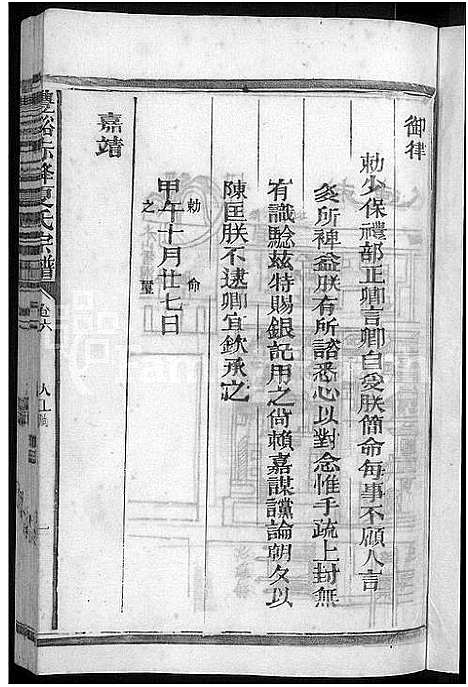 御律
勅少保禮部正卿言卿自受朕簡命每事不顧人言
夋所裨益朕有所諮悉心以對念惟手疏上封無
有識騐茲特賜銀記用之尙賴嘉謀讜論朝夕以
陳匡朕不逮卿宜欽承之
勅命
甲午十月廿七日
之寶
嘉靖
豊谿赤峰夏氏宗譜
卷六
一